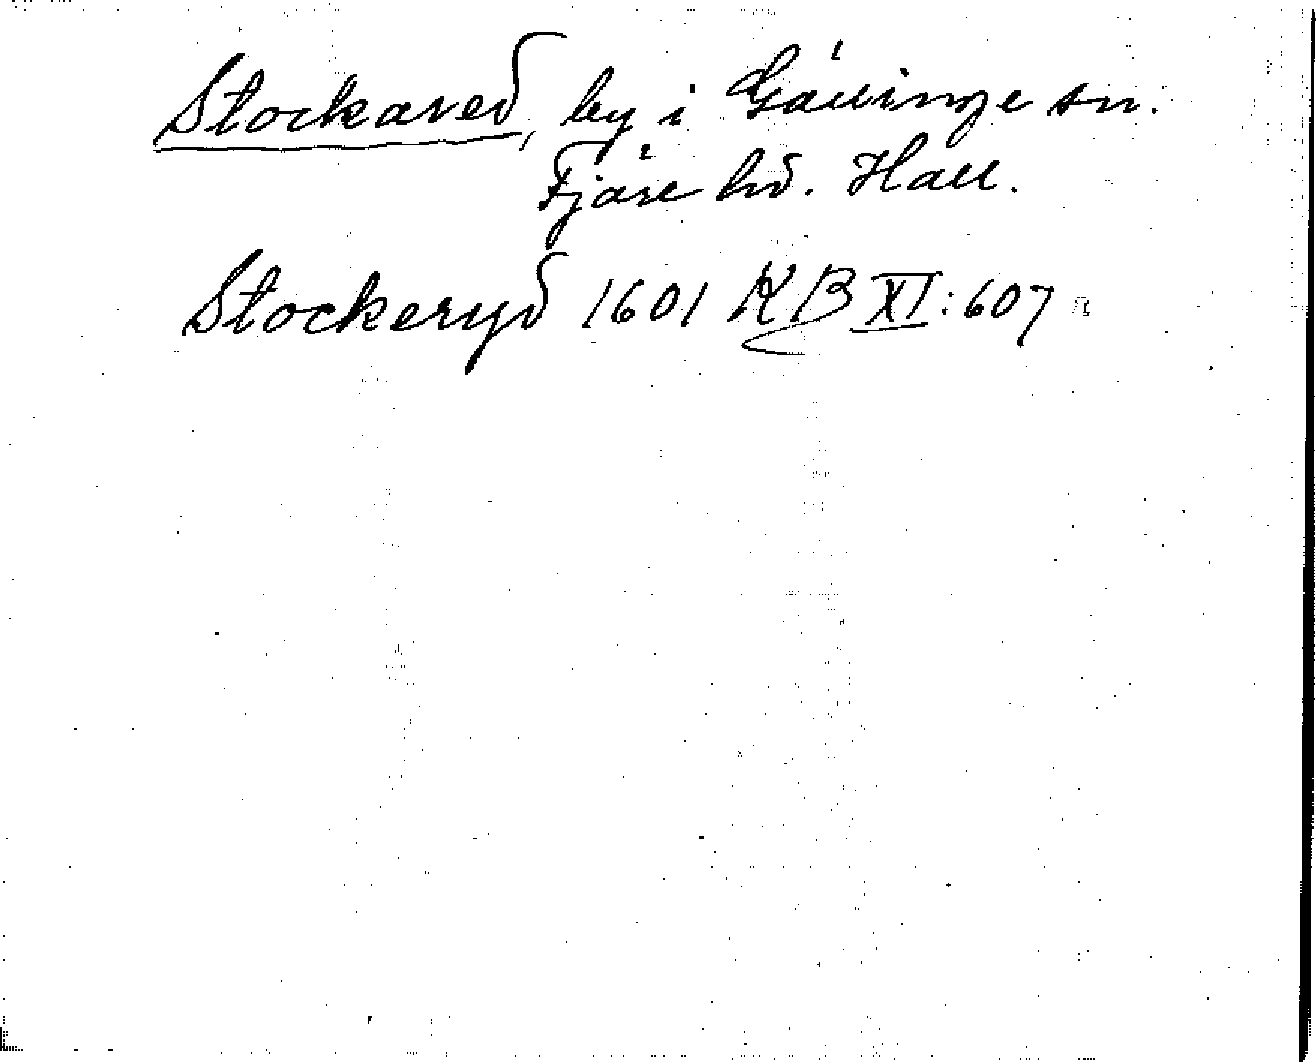 Stockared, by i Gällinge sn.
Fjäre hd. Hall.
Stockeryd 1601 KB XI:607